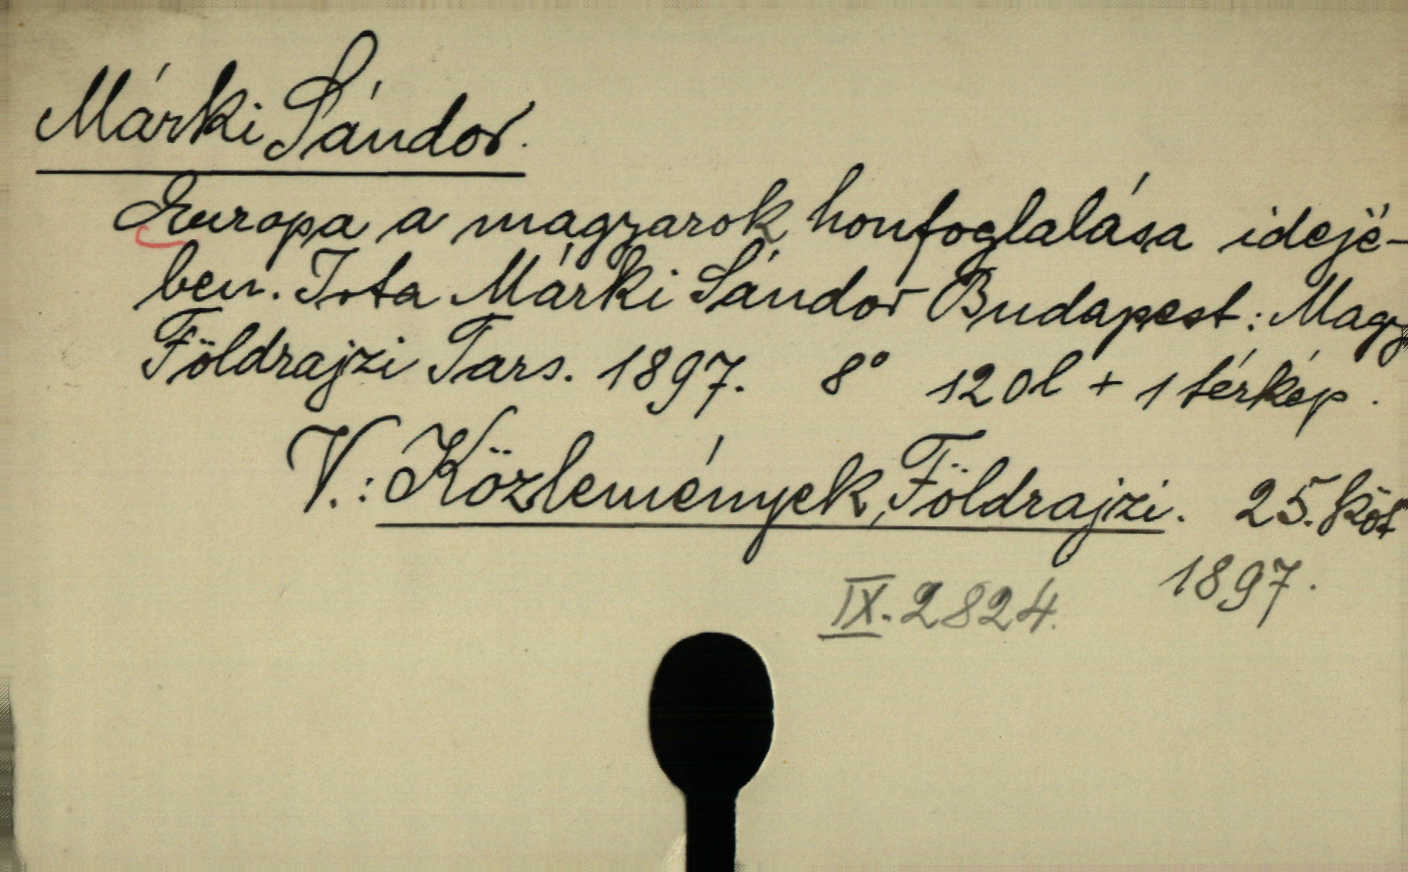 Márki Sándor.
Europa a magyarok honfoglalása idejé-
ben. Irta Márki Sándor Budapest: Magy
Földrajzi Társ. 1897. 8° 120l + 1 térkép.
V.: Közlemények, Földrajzi. 25. köt
1897.
IX. 2824.